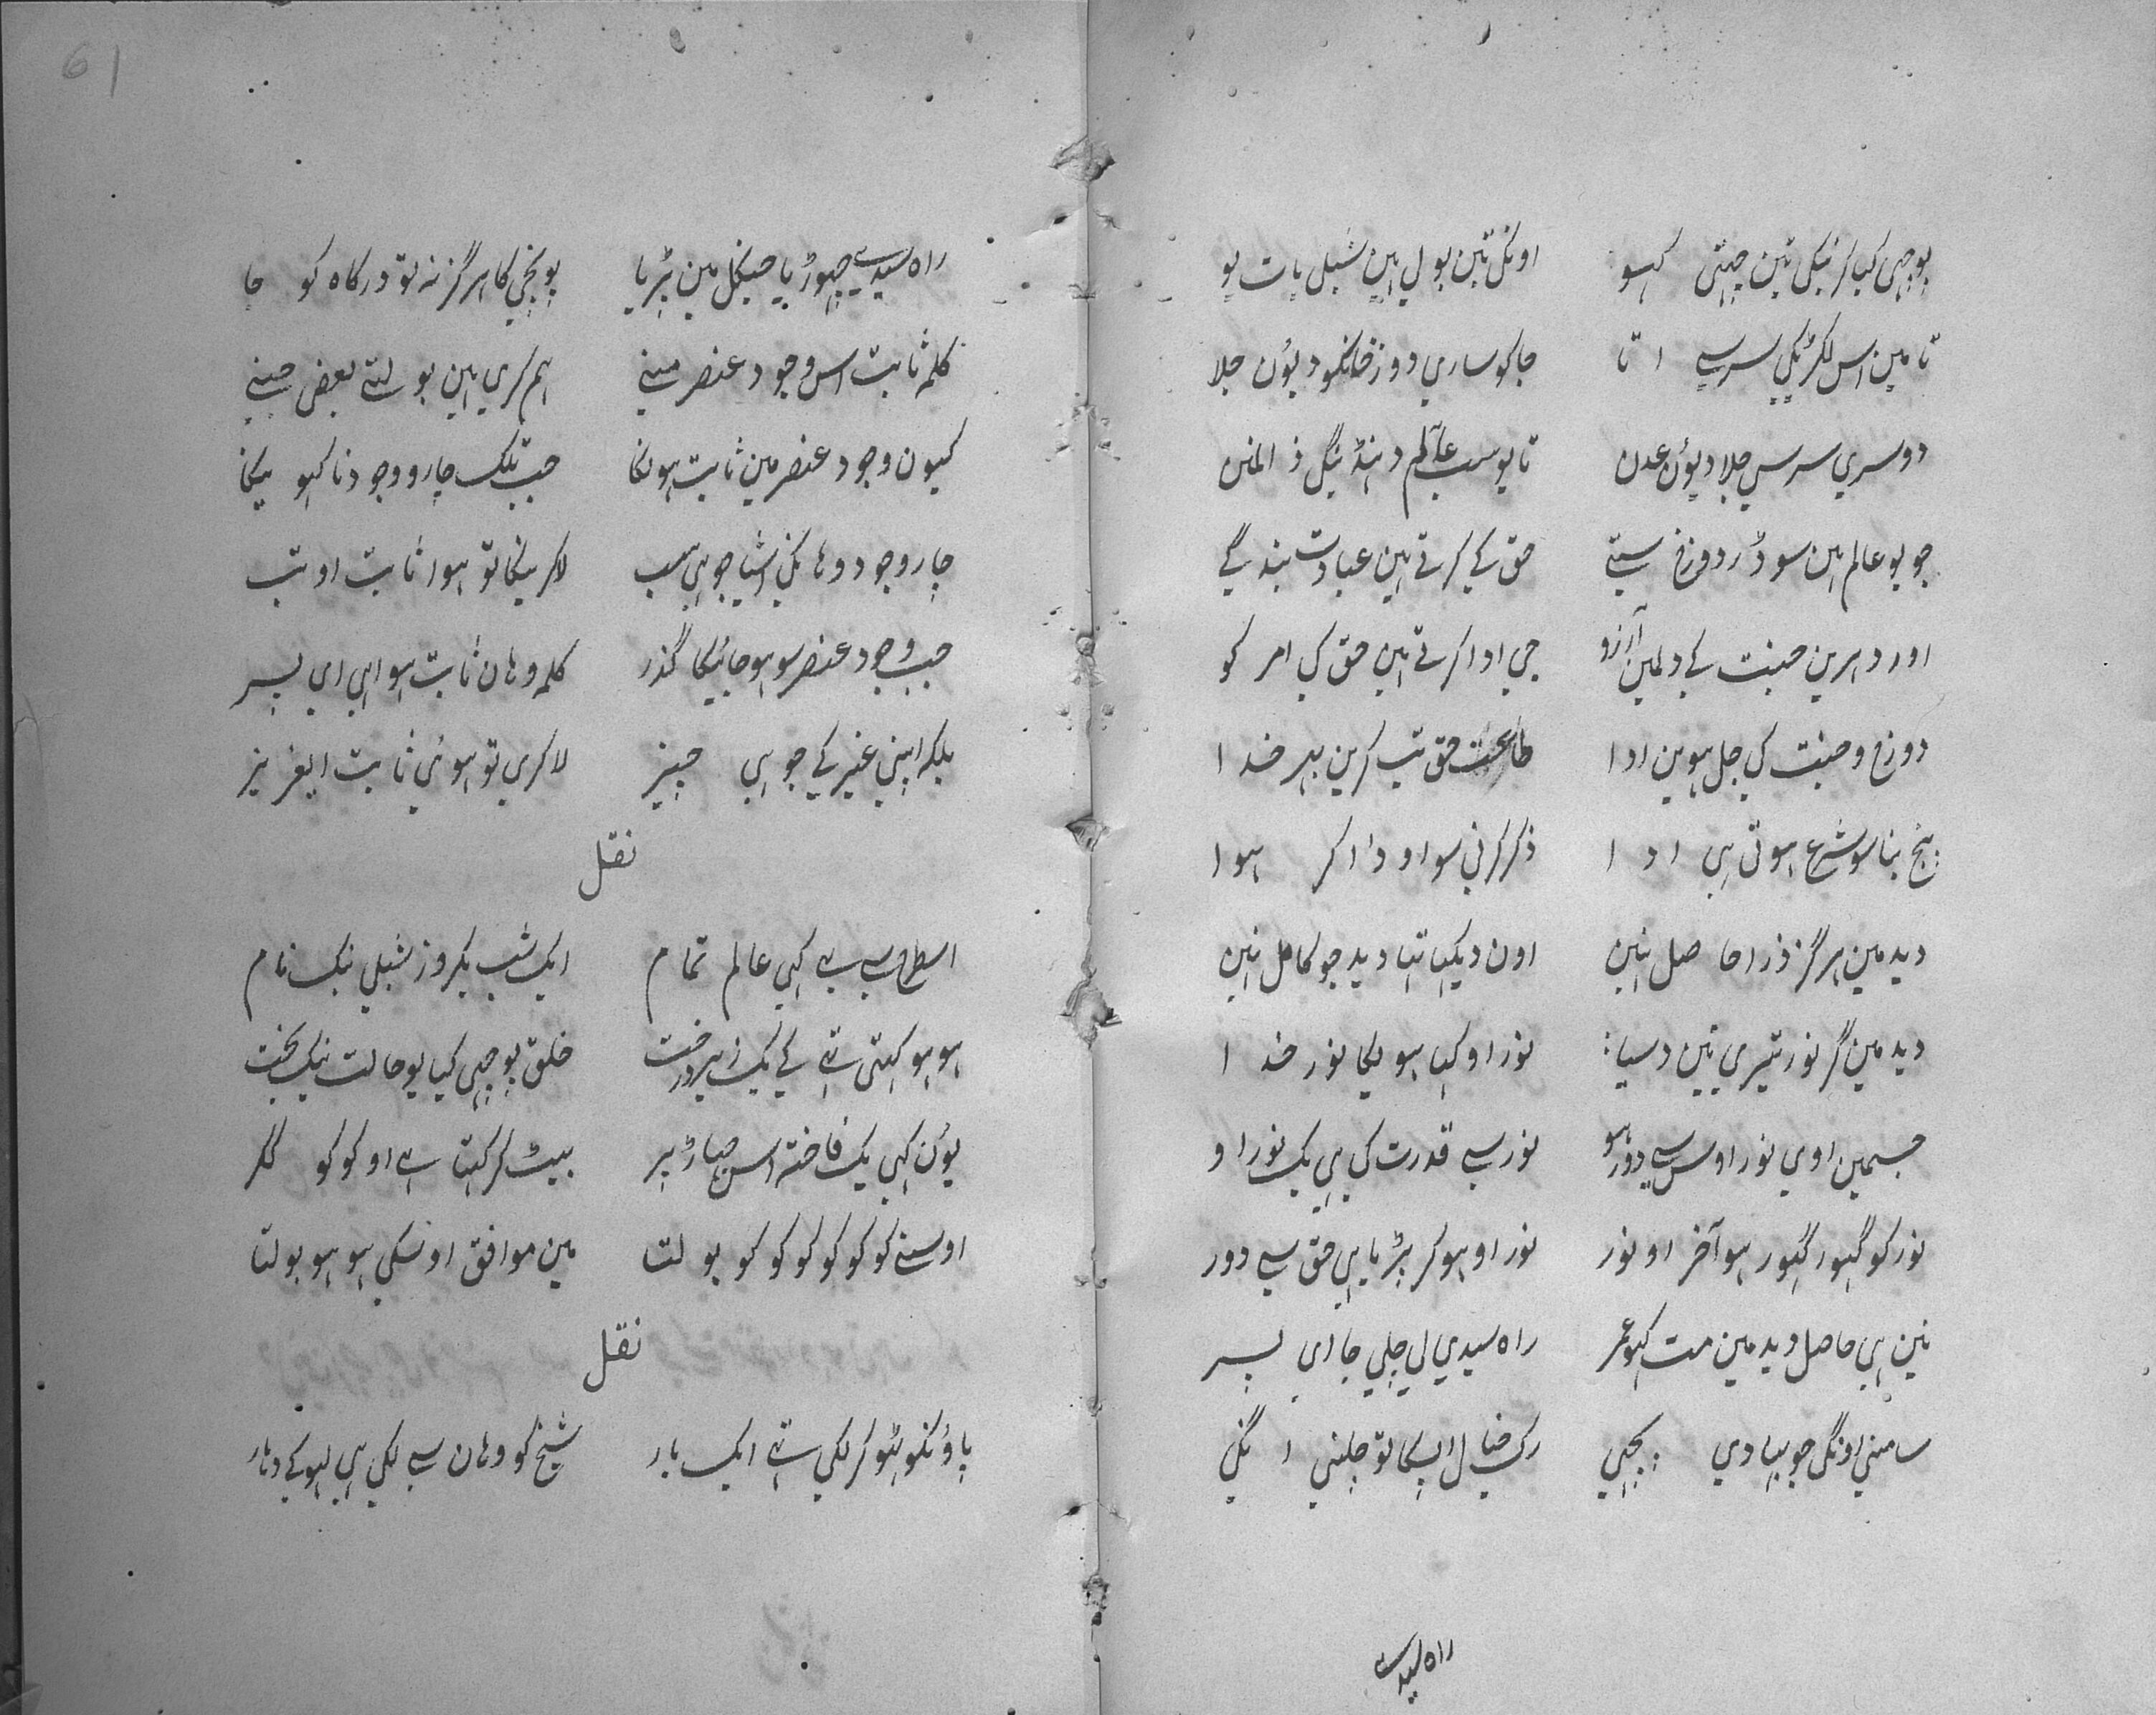 پوچہی کیا کرنیکی تین چہتی کہو اونکی تین بولی ہین شبلی یات یو
تا مین اس لکڑیکی سرسے اتا جاکو ساری دوزخانکو دیؤن جلا
دوسری سرسی جلا دیؤن عدن تا یو سب عالم
جو یو عالم ہین سو ڈر دوزخ ستے حق کے کرتے ہین عبادت بندگے
اور دہرین جنت کے دلمین آرزو جی ادا کرتے ہین حق کی امر کو
دوزخ و جنت کی جل ہوین ادا طاعت حق تب کرین بہر خدا
پنج بنا سو شرع ہوتی ہی ادا ذکر کرنی سو او ذاکر ہوا
دید مین ہرگز ذرا حاصل نین اون دیکہا تہا دید جو کامل نین
دید مین گر نور تیری تین دسیا نور او کیا ہویگا نور خدا
جسمین اوی نور اوس سے دور ہو نور سے قدرت کی ہی یک نور او
نور کو گہور گہور ہو آخر او نور نور او ہو کر پڑیا ہی حق سے دور
نین ہی حاصل دید مین مت کہو عمر راہ سیدی لی چلی جا ای پسر
سامنی اونگی جو پیادی پچہی رک خیال اپسکا تو چلنی انگی
راہ سیدے
61
راہ سیدے چہوڑیا جنگل مین پڑیا پونچی کا ہرگز نہ تو درکاہ کو جا
کلمہ ثابت اس وجود عنصر منے ہم کری ہین بولتے بعض جنے
کیون وجود عنصر مین ثابت ہویگا جب تلک چارو وجود نا کہو یگا
چار وجود وہانکی اشیا جو ہی سب لا کریگا تو ہوا ثابت او تب
جب وجود عنصر سو ہو جائیگا گذر کلمہ وہان ثابت ہوا ہی ای پسر
بلکہ اپنی غیر کے جو ہی چیز لا کری تو ہوئی ثابت ایعزیز
نقل
اسطرح سے ہے کہی عالم تمام ایک شب یکروز شبلی نیک نام
ہو ہو کہتی تہے کے یک زیر درخت خلق پوچہی کیا یو حالت نیک بخت
یوں کہی یک فاختہ اس جہاڑ پر بیٹ کر کہتا ہے او کو کو مگر
اوسنے کو کو کو کو کو کو بولتا مین موافق اونسکی ہو ہو بولتا
نقل
پاؤنکو ہٹو کر لکی تہے ایک بار شیخ کو وہان سے لکی ہی لہو کے دہار